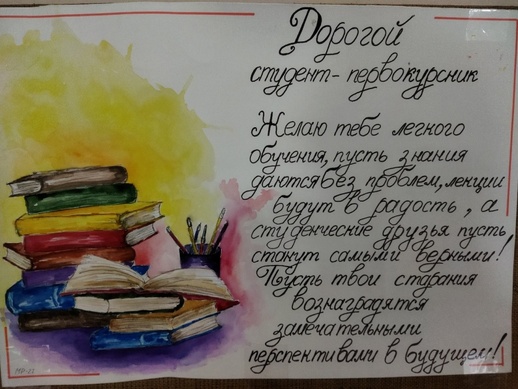 Дорогой
студент-первокурсник
Желаю тебе легкого
обучения, пусть знания
даются без проблем, лекции
будут в радость, а
студенческие друзья пусть
станут самыми верными!
Пусть твои старания
вознаградятся
замечательными
перспективами в будущем!